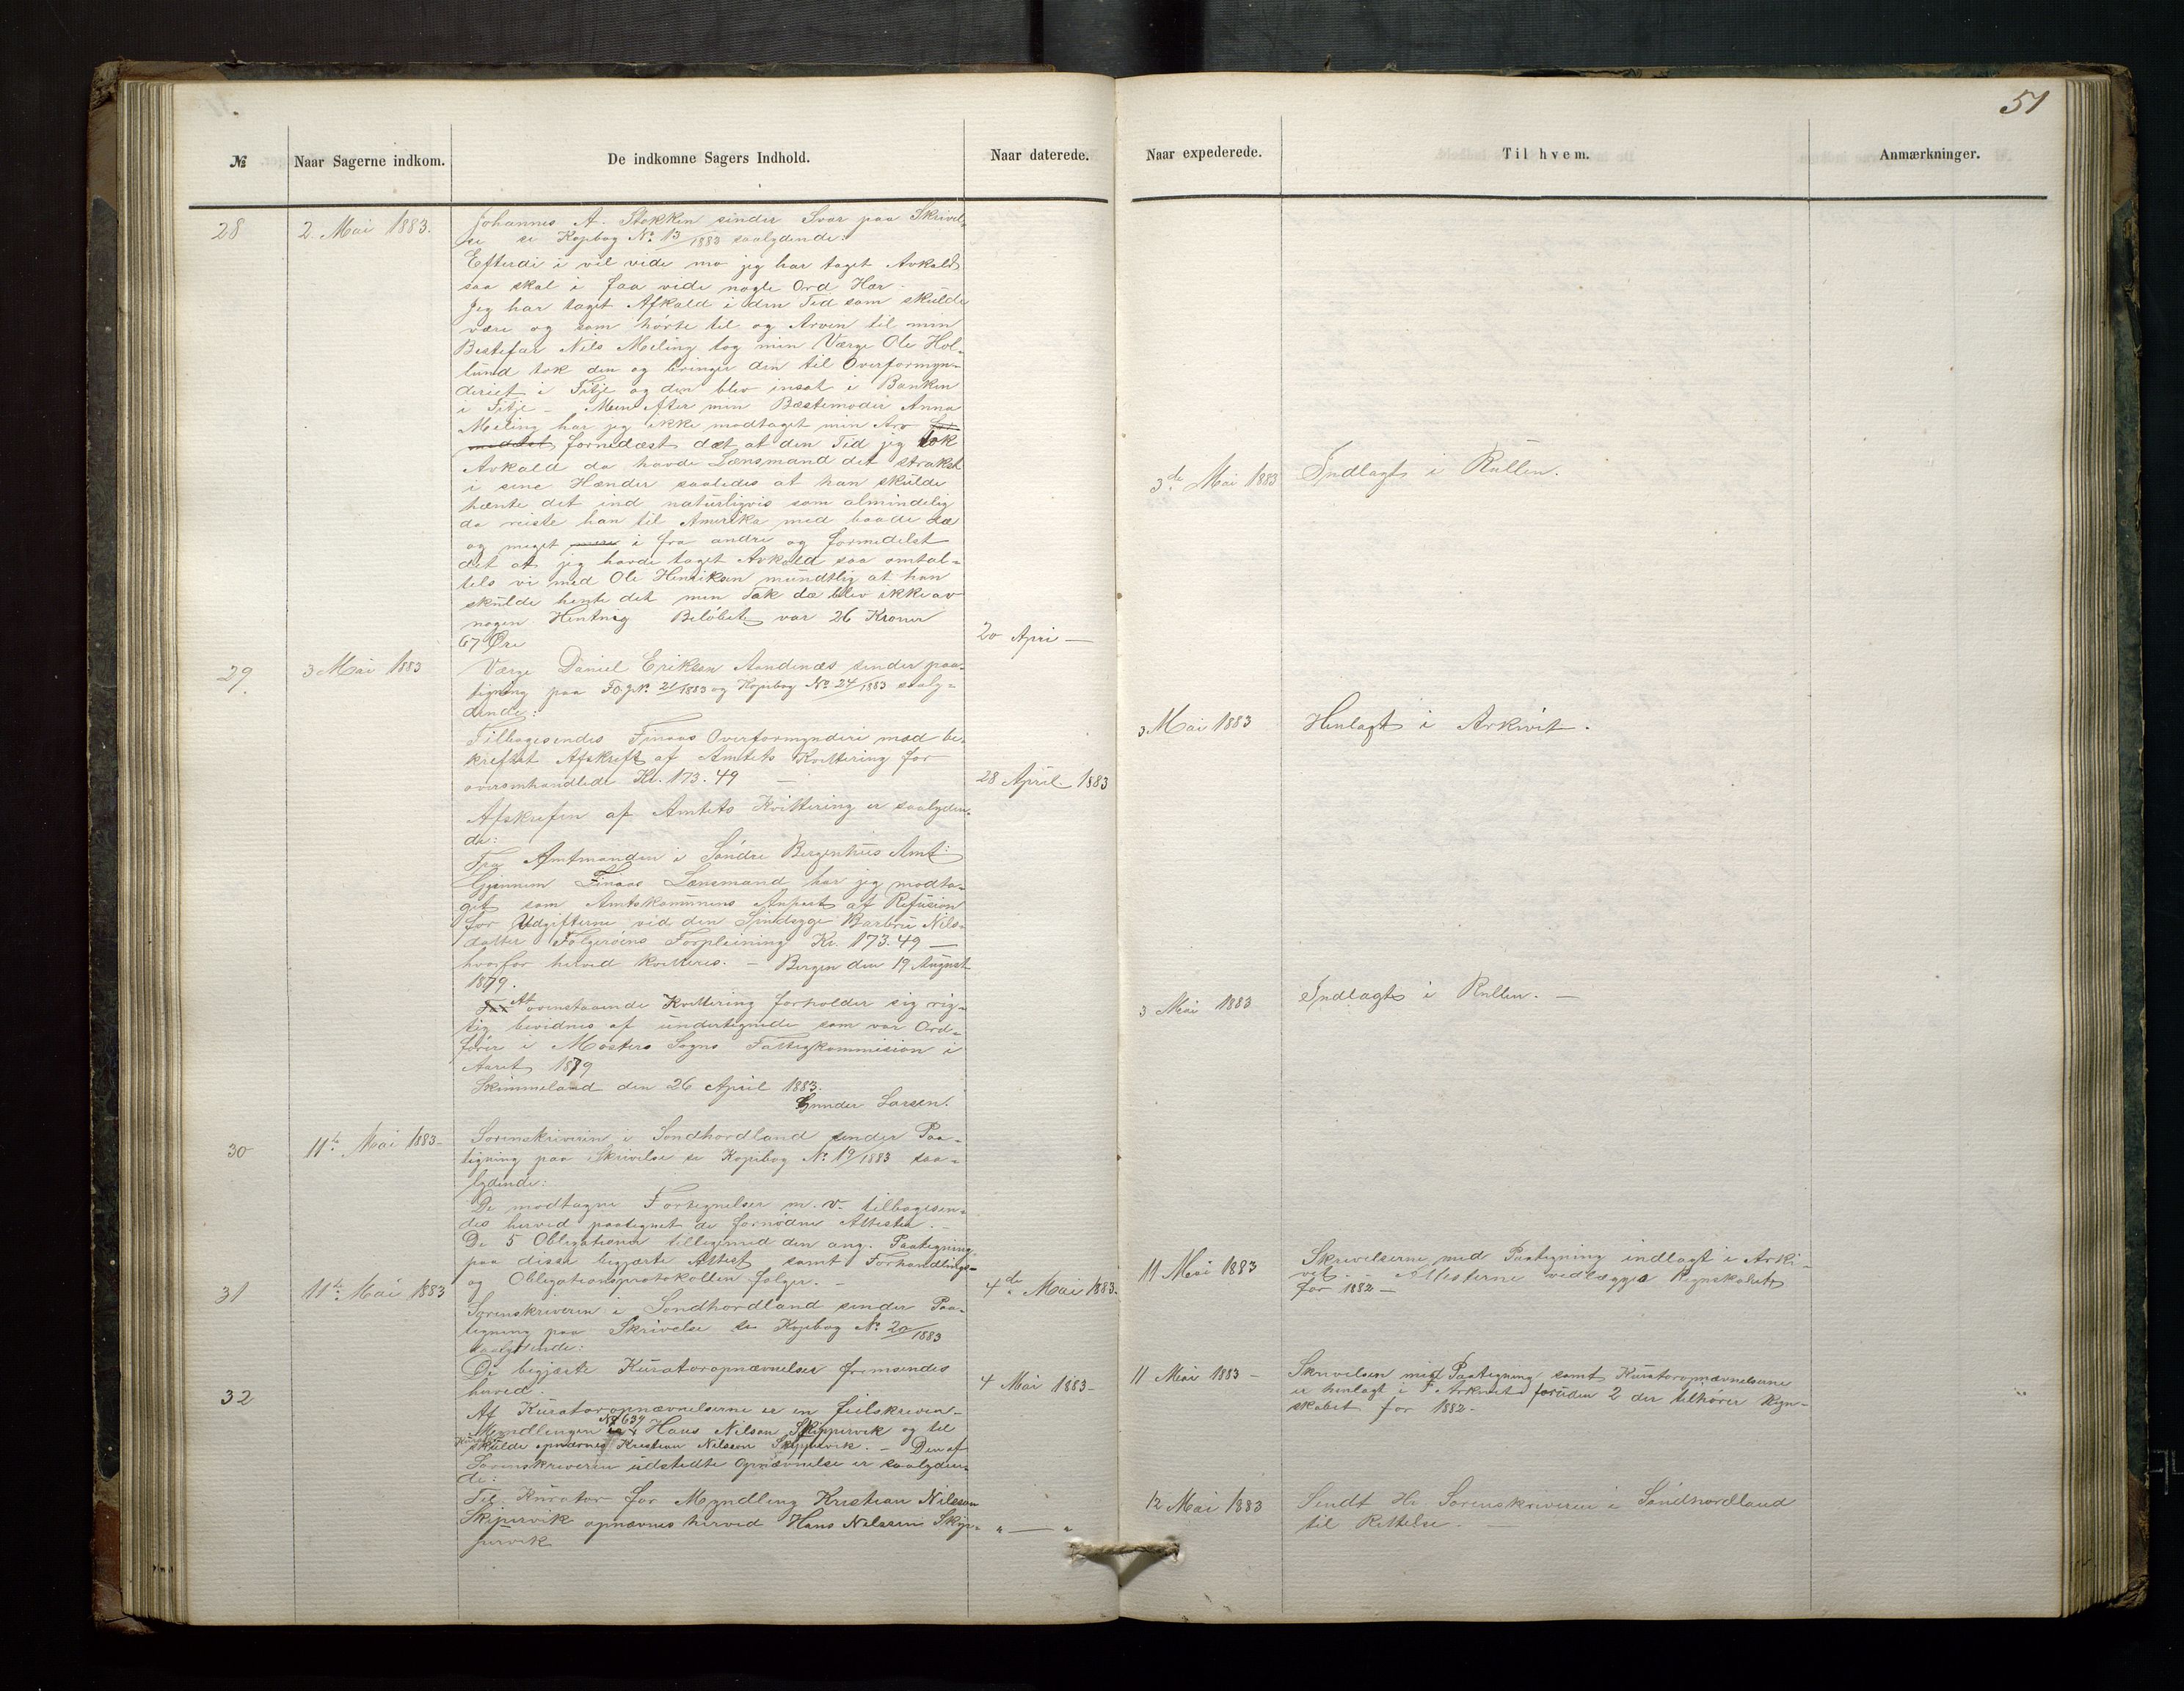 51
№
Naar Sagerne indkom.
De indkomne Sagers Indhold.
Naar daterede.
Naar expederede.
Til hvem.
Anmærkninger.
28
2. Mai 1883.
Johannes A. Stokken sender Svar paa Skrivel-
se se Kopibog No. 13/1883 saalydende:
Efterdi i vil vide mo jeg har taget Avkald
saa skal i faa vide nogle Ord Her -
Jeg har taget Afkald i den Tid som skulde
være og som hørte til og Arven til min
Bestefar Nils Meling tog min Værge Ole Hol-
lund tok den og bringer den til Overformyn-
deriet i Fitje og den blev insat i Banken
i Fitje - Men efter min Bæstemoder Anna
Meling har jeg ikke modtaget min Arv
formedæst dæt at den Tid jeg tok
Avkald da havde Lænsmand det strakst
i sine Hænder saaledes at han skulde
hænte det ind naturligvis som almindelig
da reiste han til Amerika med baade dæ
og meget i fra andre og formedelst
det at jeg havde taget Avkald saa omtal-
tels vi med Ole Henriksen mundtlig at han
skulde hente det men Tak da blev ikke av
nogen Hentnig Beløbet var 26 Kroner
67 Øre
20 Apri —
3de Mai 1883
Indlagt i Rullen.
29.
3 Mai 1883
Værge Daniel Eriksen Aandenæs sender paa-
tegning paa Fo.g.N. 21/1883 og Kopibog No. 24/1883 saaly-
dende:
Tilbagesendes Finaas Overformynderi med be-
kreftet Afskrift af Amtets Kvittering for
overomhandlede Kr. 173.49 —
28 April 1883
3 Mai 1883
Henlagt i Arkivet.
Afskriften af Amtets Kvittering er saalyden-
de:
Fra Amtmanden i Søndre Bergenhus Amt:
Gjennem Finaas Lænsmand har jeg modta-
get som Amtskommunens Anpart af Refusion
for Udgifterne ved den Sindsyge Barbru Nils-
datter Folgerøens Forpleining Kr. 173.49 —
hvorfor herved kvitteres. - Bergen den 19 August
1879.
At ovenstaaende Kvittering forholder sig rig-
tig bevidnes af undertegnede som var Ord-
fører i Mosters Sogns Fattigkommision i
Aaret 1879
Skimmeland den 26 April 1883.
Gunder Larsen.
3 Mai 1883
Indlagt i Rullen. —
30
11te Mai 1883-
Sorenskriveren i Søndhordland sender Paa-
tegning paa Skrivelse se Kopibog No. 19/1883 saa-
lydende:
De modtagne Fortegnelser m. v. tilbagesen-
des herved paategnet de fornødne Attester. -
De 5 Obligationer tilligemed den ang. Paategning
paa disse begjærte Attest samt Forhandlings-
og Obligationsprotokollen følger. -
4de Mai 1883.
11 Mai 1883
Skrivelserne med Paategning indlagt i Arki-
vet. - Attesterne vedlægges Regnskabet
for 1882 —
31
11te Mai 1883
Sorenskriveren i Søndhordland sender Paa-
tegning paa Skrivelse se Kopibog No. 20/1883
saalydende:
De begjærte Kuratoropnævnelser fremsendes
herved.
4 Mai 1883-
11 Mai 1883 -
Skrivelsen med Paategning samt Kuratoropnævnelserne
er henlagt i F. Arkivet foruden 2 der tilhører Regn-
skabet for 1882-
32
Af Kuratoropnævnelserne er en feilskreven-
Myndlingen No 639 Hans Nilsen Skippervik og til
Kurator skulde opnævnes Kristian Nilssen Skippervik. - Den af
Sorenskriveren udstedte Opnævnelse er saalyden-
de:
Til Kurator for Myndling Kristian Nilssen
Skipervik opnævnes herved Hans Nelssen Skip-
pervik
" — "
12 Mai 1883
Sendt Hr. Sorenskriveren i Søndhordland
til Rettelse. —